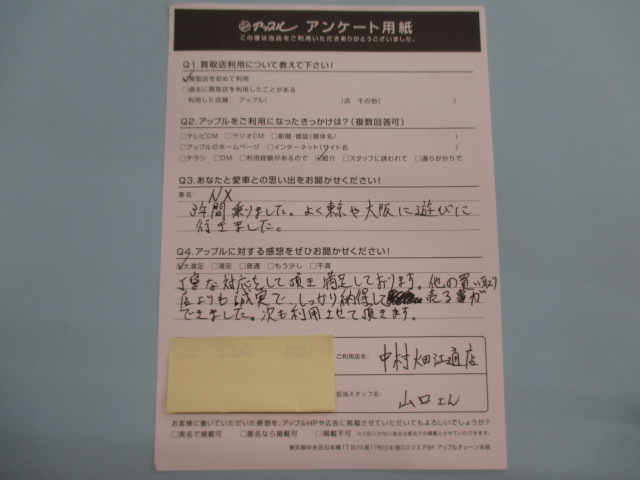 アップル アンケート用紙
この度は当店をご利用いただきありがとうございました。
Q1.買取店利用について教えて下さい!
☑買取店を初めて利用
□過去に買取店を利用したことがある
利用した店舗: アップル( )店 その他( )
Q2.アップルをご利用になったきっかけは?(複数回答可)
□テレビCM □ラジオCM □新聞・雑誌(媒体名/ )
□アップルのホームページ □インターネット(サイト名 )
□チラシ □DM □利用経験があるので ☑紹介 □スタッフに誘われて □通りがかりで
Q3.あなたと愛車との思い出をお聞かせください!
車名: NX
3年間乗りました。よく東京や大阪に遊びに
行きました。
Q4.アップルに対する感想をぜひお聞かせください!
☑大満足 □満足 □普通 □もう少し □不満
丁寧な対応をして頂き満足しております。他の買い取り
店よりも誠実で、しっかり納得して売る事が
できました。次も利用させて頂きます。
ご利用店名: 中村畑江通店
担当スタッフ名 山口さん
お客様に書いていただいた感想を、アップルHPや広告に掲載させていただいてもよろしいでしょうか?
□実名で掲載可 □匿名なら掲載可 □掲載不可 ※ご記入がない場合は匿名での掲載とさせていただきます。
東京都中央区日本橋1丁目16番11号日本橋Dスクエア8F アップルチェーン本部